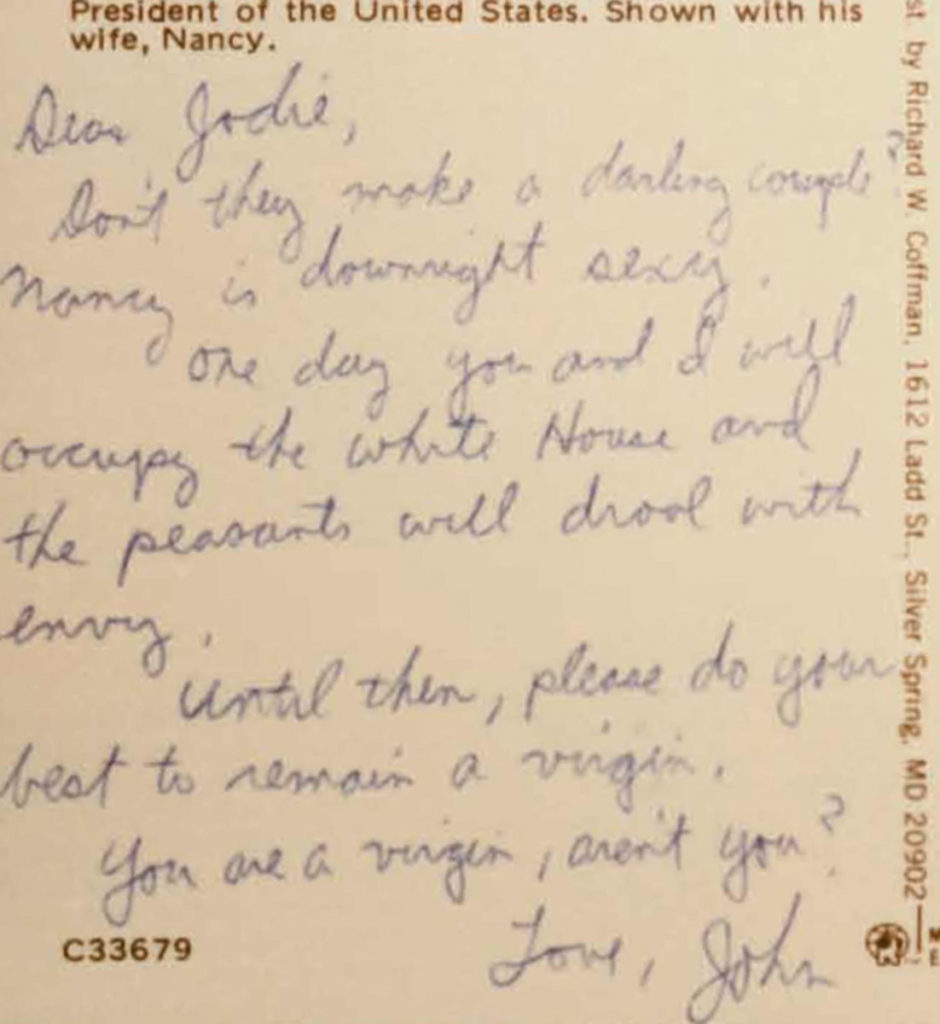 President of the United States. Shown with his
wife, Nancy.
Dear Jodie,
Don't they make a darling couple?
Nancy is downright sexy.
One day you and I will
occupy the White House and
the peasants will drool with
envy.
Until then, please do your
best to remain a virgin.
You are a virgin, aren't you?
Love, John
C33679
st by Richard W. Coffman, 1612 Ladd St., Silver Spring, MD 20902